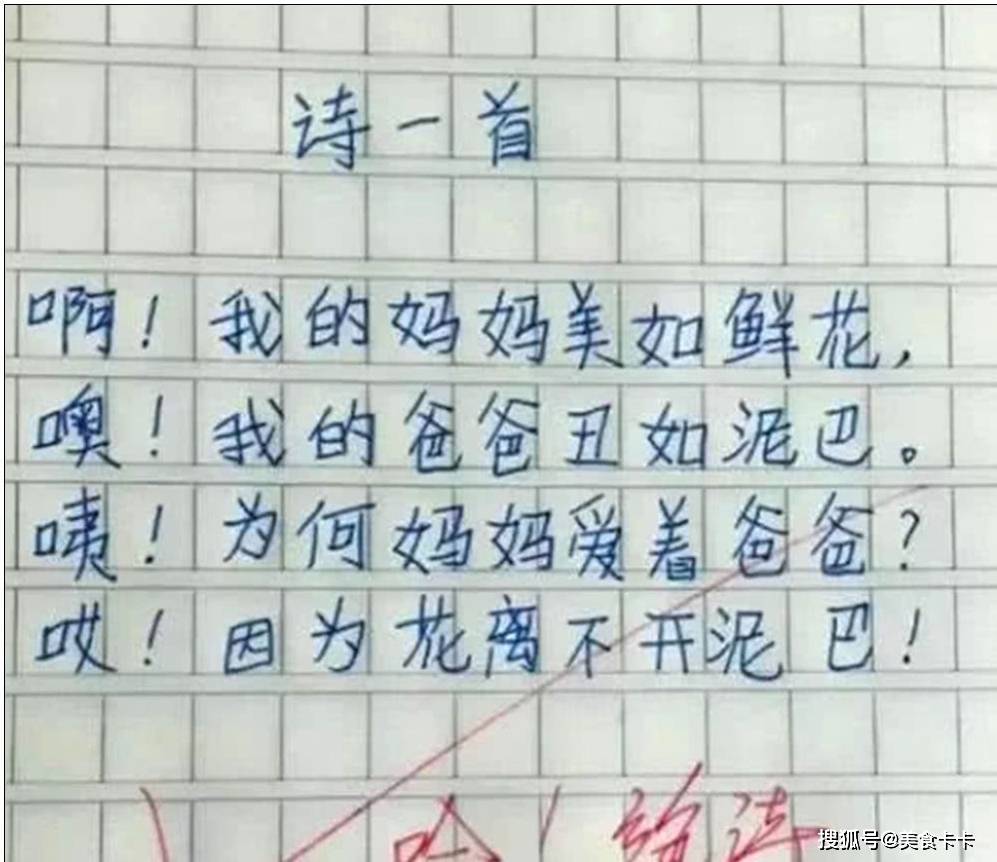 诗一首
啊！我的妈妈美如鲜花，
噢！我的爸爸丑如泥巴。
咦！为何妈妈爱着爸爸？
哎！因为花离不开泥巴！
搜狐号@美食卡卡